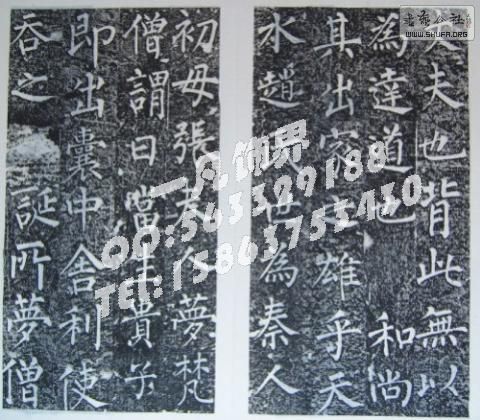 丈夫也背此無以
為達道也和尚
其出家之雄乎天
水趙世為秦人
初母張夫人夢梵
僧謂曰當生貴子
即出囊中舍利使
吞之誕所夢僧
一凡饰界
QQ:563329188
TEL:15863753430
書法公社
WWW.SHUFA.ORG